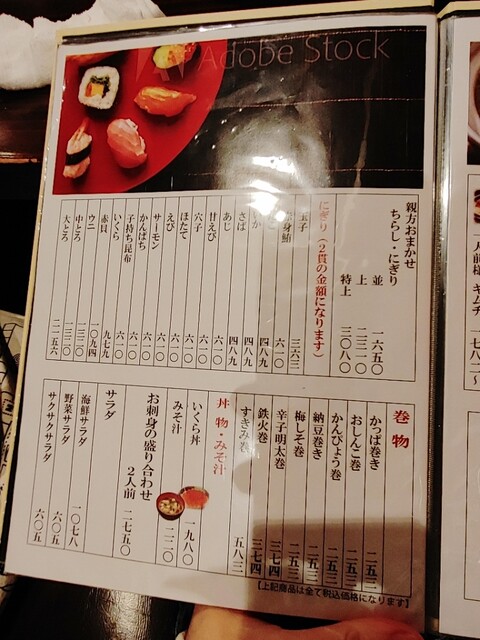 Adobe Stock
親方おまかせ
ちらし・にぎり
並 一六五〇
上 二三一〇
特上 三〇八〇
にぎり(2貫の金額になります)
玉子 三六三
身鮪 六一〇
いか 四八九
さば 四八九
あじ 四八九
甘えび 六一〇
穴子 六一〇
ほたて 六一〇
えび 六一〇
サーモン 六一〇
かんぱち 六一〇
子持ち昆布 六一〇
いくら 六一〇
赤貝 九七九
ウニ 一〇九四
中とろ 一三二〇
大とろ 二一五六
巻物
かっぱ巻き 二五三
おしんこ巻 二五三
かんぴょう巻 二五三
納豆巻き 二五三
梅しそ巻 二五三
辛子明太巻 三七四
鉄火巻 三七四
すきみ巻 五八三
丼物・みそ汁
いくら丼 一九八〇
みそ汁 二二〇
お刺身の盛り合わせ
2人前 二七五〇
サラダ
海鮮サラダ 一〇七八
野菜サラダ 六〇五
サクサクサラダ 六〇五
【上記商品は全て税込価格になります】
人前様 キムチ